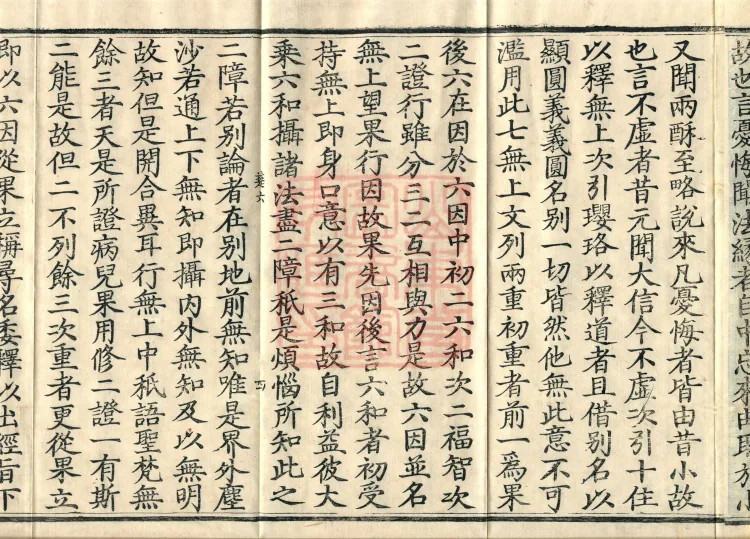 故也言憂悔聞法緣者自中忠來由
又聞兩酥至略說來凡憂悔者皆由昔小故
也言不虛者昔元聞大信今不虛次引十住
以釋無上次引瓔珞以釋道者且借別名以
顯圓義義圓名別一切皆然他無此意不可
濫用此七無上文列兩重初重者前一爲果
後六在因於六因中初二六和次二福智次
二證行雖分三二互相與力是故六因並名
無上望果行因故果先因後言六和者初受
持無上即身口意以有三和故自利益彼大
乘六和攝諸法盡二障秖是煩惱所知此之
二障若別論者在別地前無知唯是界外塵
沙若通上下無知即攝內外無知及以無明
故知但是開合異耳行無上中秖語聖梵無
餘三者天是所證病兒果用修二證一有斯
二能是故但二不列餘三次重者更從果立
即以六因從果立稱尋名委釋以出經旨下